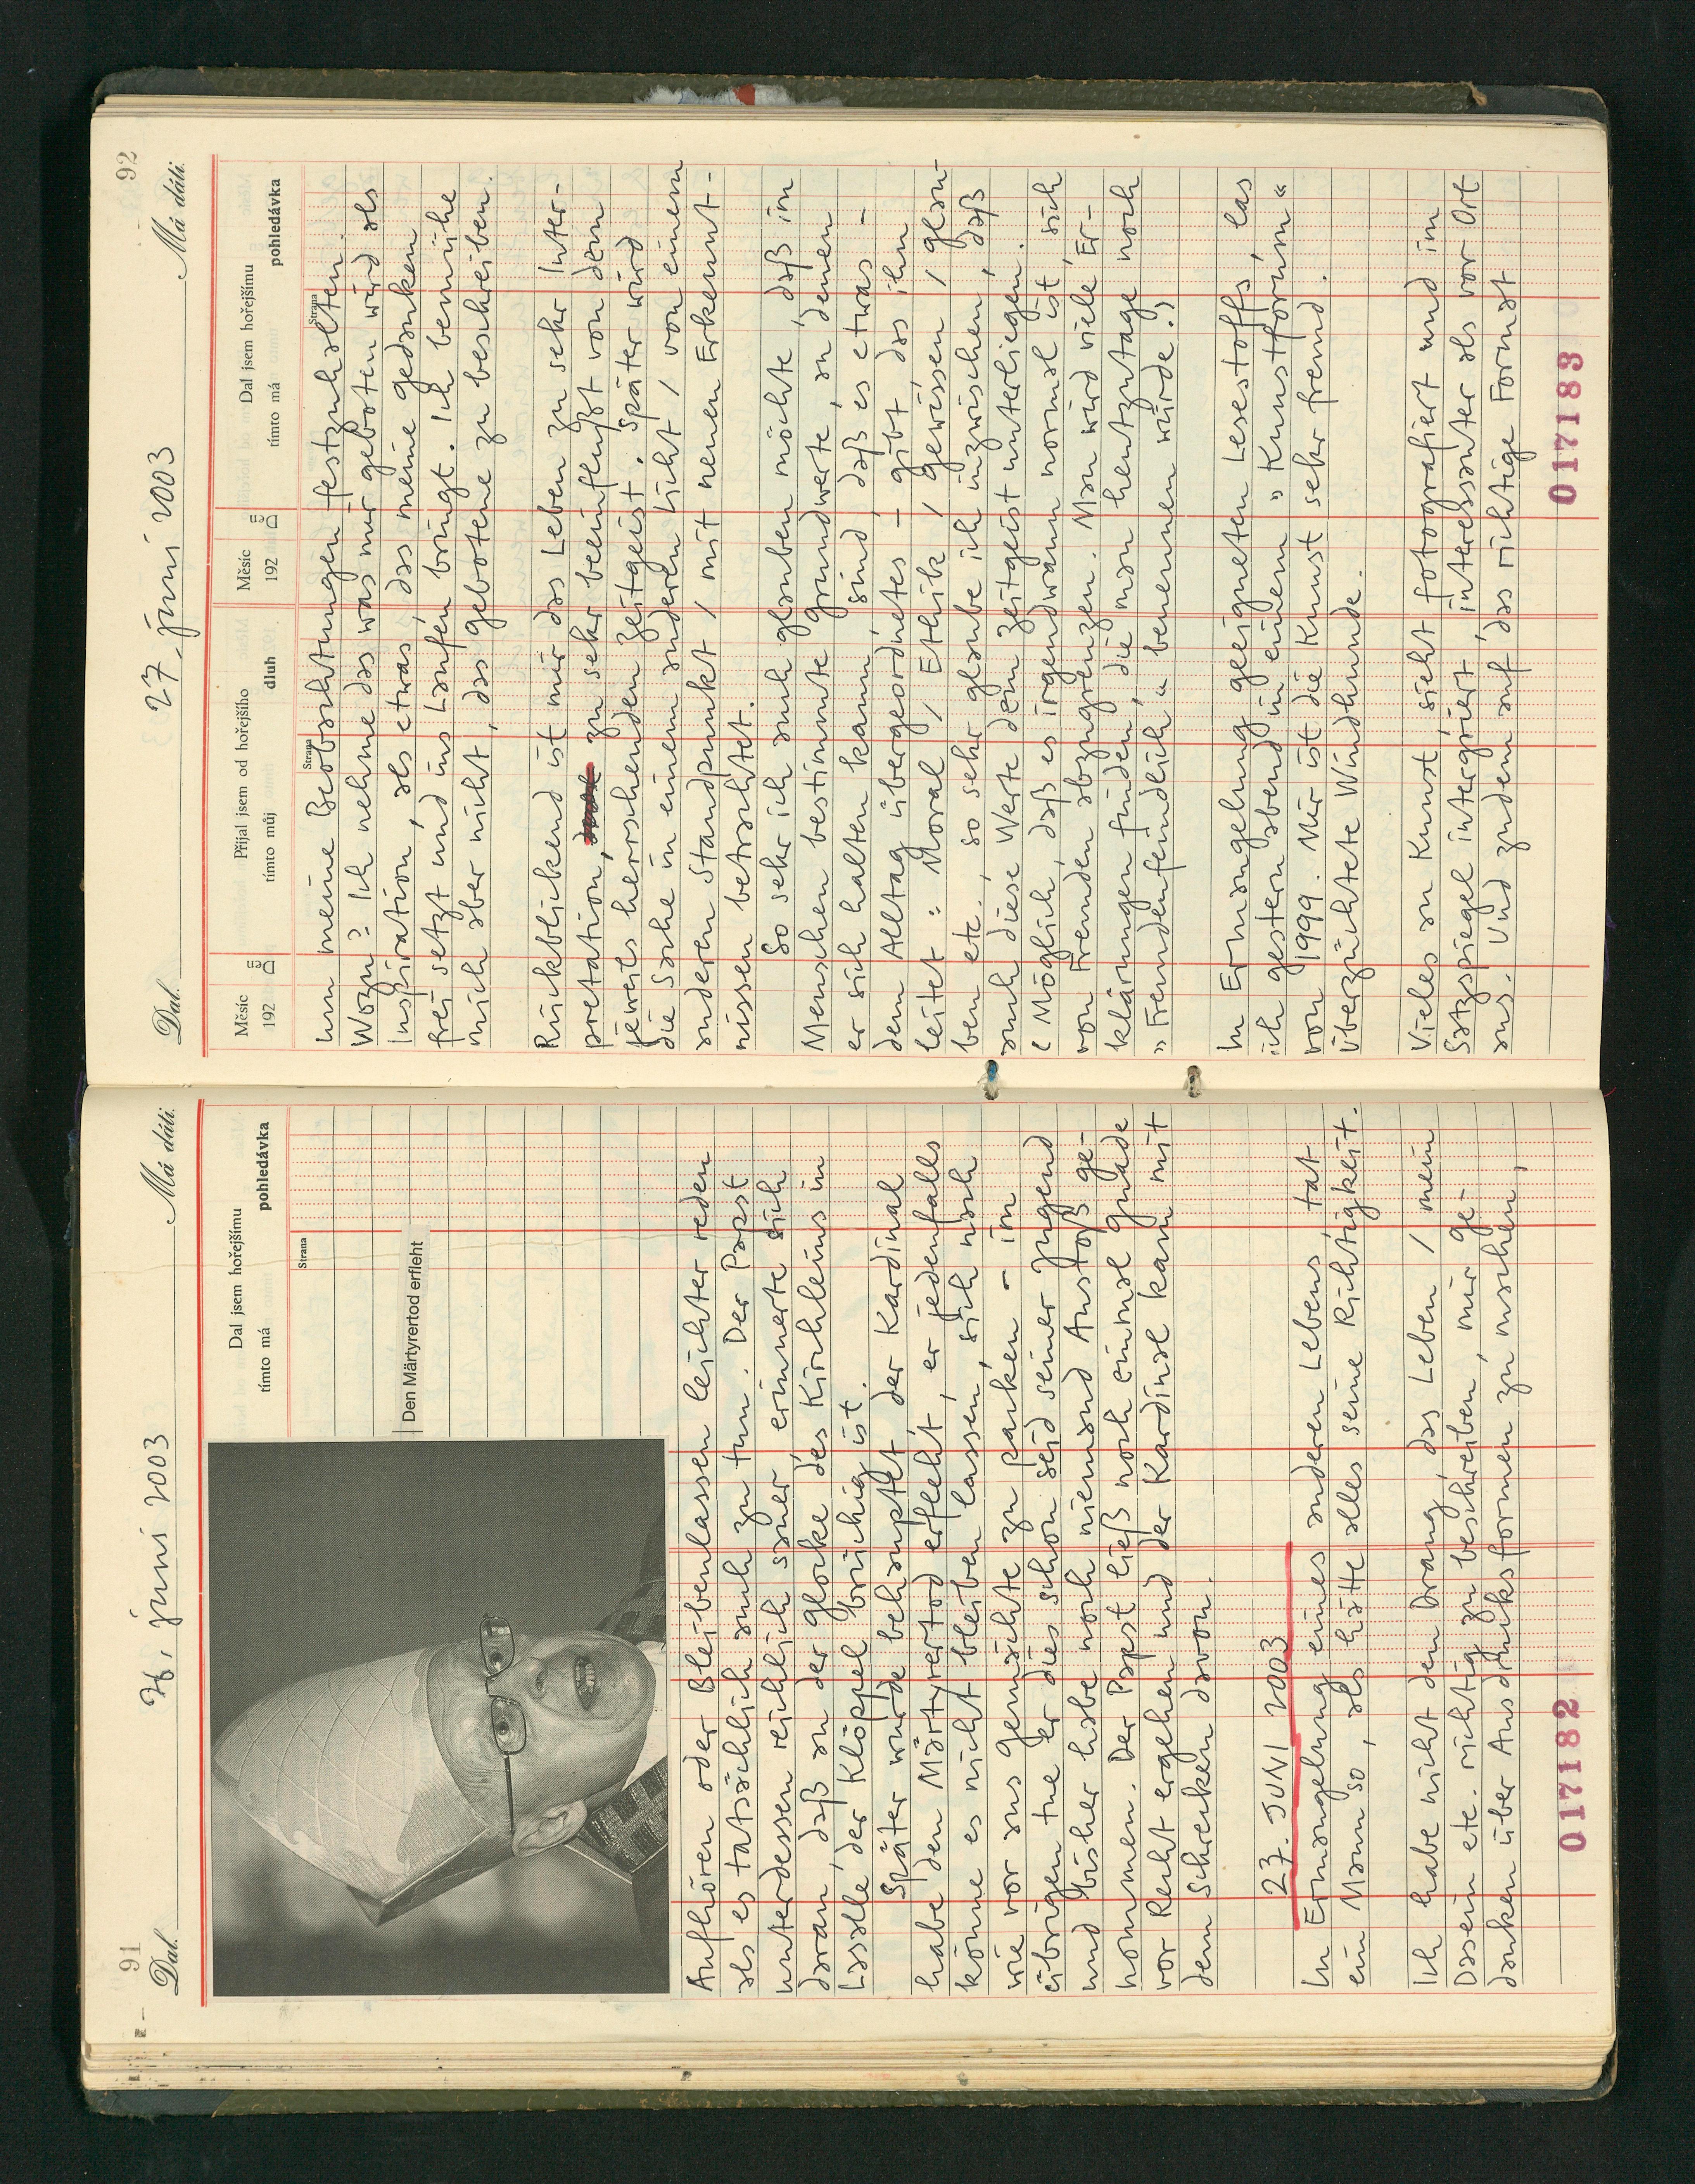 91
Dal. 26. juni 2003 Má dáti.
Dal jsem hořejšímu
tímto má pohledávka
Strana
Den Märtyrertod erfleht
Aufhören oder Bleibenlassen leichter reden
als es tatsächlich auch zu tun. Der Papst
unterdessen reichlich sauer, erinnerte sich
daran, daß an der Glocke des Kirchleins in
Lasalle der Klöppel brüchig ist.
Später wurde behauptet, der Kardinal
habe den Märtyrertod erfleht, er jedenfalls
könne es nicht bleiben lassen, sich nach
wie vor ans Gemächte zu packen - im
übrigen tue er dies schon seid seiner Jugend
und bisher habe noch niemand Anstoß ge-
nommen. Der Papst ließ noch einmal Gnade
vor Recht ergehen und der Kardinal kam mit
dem Schrecken davon.
27. JUNI 2003
In Ermangelung eines anderen Lebens, tat
ein Mann so, als hätte alles seine Richtigkeit.
Ich habe nicht den Drang, das Leben / mein
Dasein etc. richtig zu beschreiben, mir Ge-
danken über Ausdrucksformen zu machen,
017182
92
Dal. 27. juni 2003 Má dáti.
Měsíc
192
Den
Přijal jsem od hořejšího
tímto můj dluh
Měsíc
192
Den
Dal jsem hořejšímu
tímto má pohledávka
Strana
Strana
um meine Beobachtungen festzuhalten.
Wozu? Ich nehme das was mir geboten wird als
Inspiration, als etwas, das meine Gedanken
frei setzt und ins Laufen bringt. Ich bemühe
mich aber nicht, das Gebotene zu beschreiben.
Rückblickend ist mir das Leben zu sehr Inter-
pretation, zu sehr beeinflußt von dem
jeweils herrschenden Zeitgeist. Später wird
die Sache in einem anderen Licht / von einem
anderen Standpunkt / mit neuen Erkennt-
nissen betrachtet.
So sehr ich auch glauben möchte, daß im
Menschen bestimmte Grundwerte, an denen
er sich halten kann, sind, daß es etwas -
dem Alltag übergeordnetes - gibt, das ihn
leitet: Moral / Ethik / Gewissen / Glau-
ben etc. so sehr glaube ich inzwischen, daß
auch diese Werte dem Zeitgeist unterliegen.
(Möglich, daß es irgendwann normal ist, sich
von Fremden abzugrenzen. Man wird viele Er-
klärungen finden, die man heutzutage noch
"Fremdenfeindlich" benennen würde.)
In Ermangelung geeigneten Lesestoffs, las
ich gestern abend in einem "Kunstforum"
von 1999. Mir ist die Kunst sehr fremd.
Überzüchtete Windhunde.
Vieles an Kunst, sieht fotografiert und im
Satzspiegel intergriert, interessanter als vor Ort
aus. Und zudem auf das richtige Format
017183